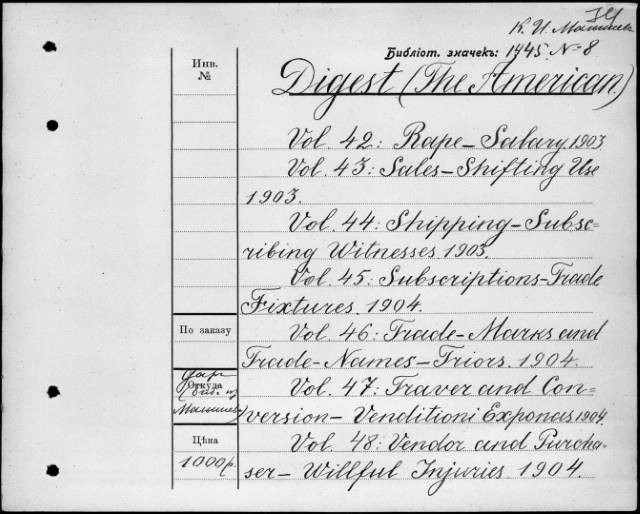 К. И. Малышев
Библіот. значекъ: 1445. № 8
Инв.
№
Digest (The American)
Vol. 42: Rape – Salary. 1903
Vol. 43: Sales – Shifting Use
1903.
Vol. 44: Shipping – Subsc-
ribing Witnesses 1903.
Vol. 45: Subscriptions – Trade
Fixtures. 1904.
По заказу
Vol. 46: Trade-Marks and
Trade-Names – Triors. 1904.
даръ
Откуда
Vol. 47: Traver and Con=
Малышев
version – Venditioni Exponas 1904.
Цѣна
Vol. 48: Vendor and Purcha-
1000 р.
ser – Willful Injuries. 1904.